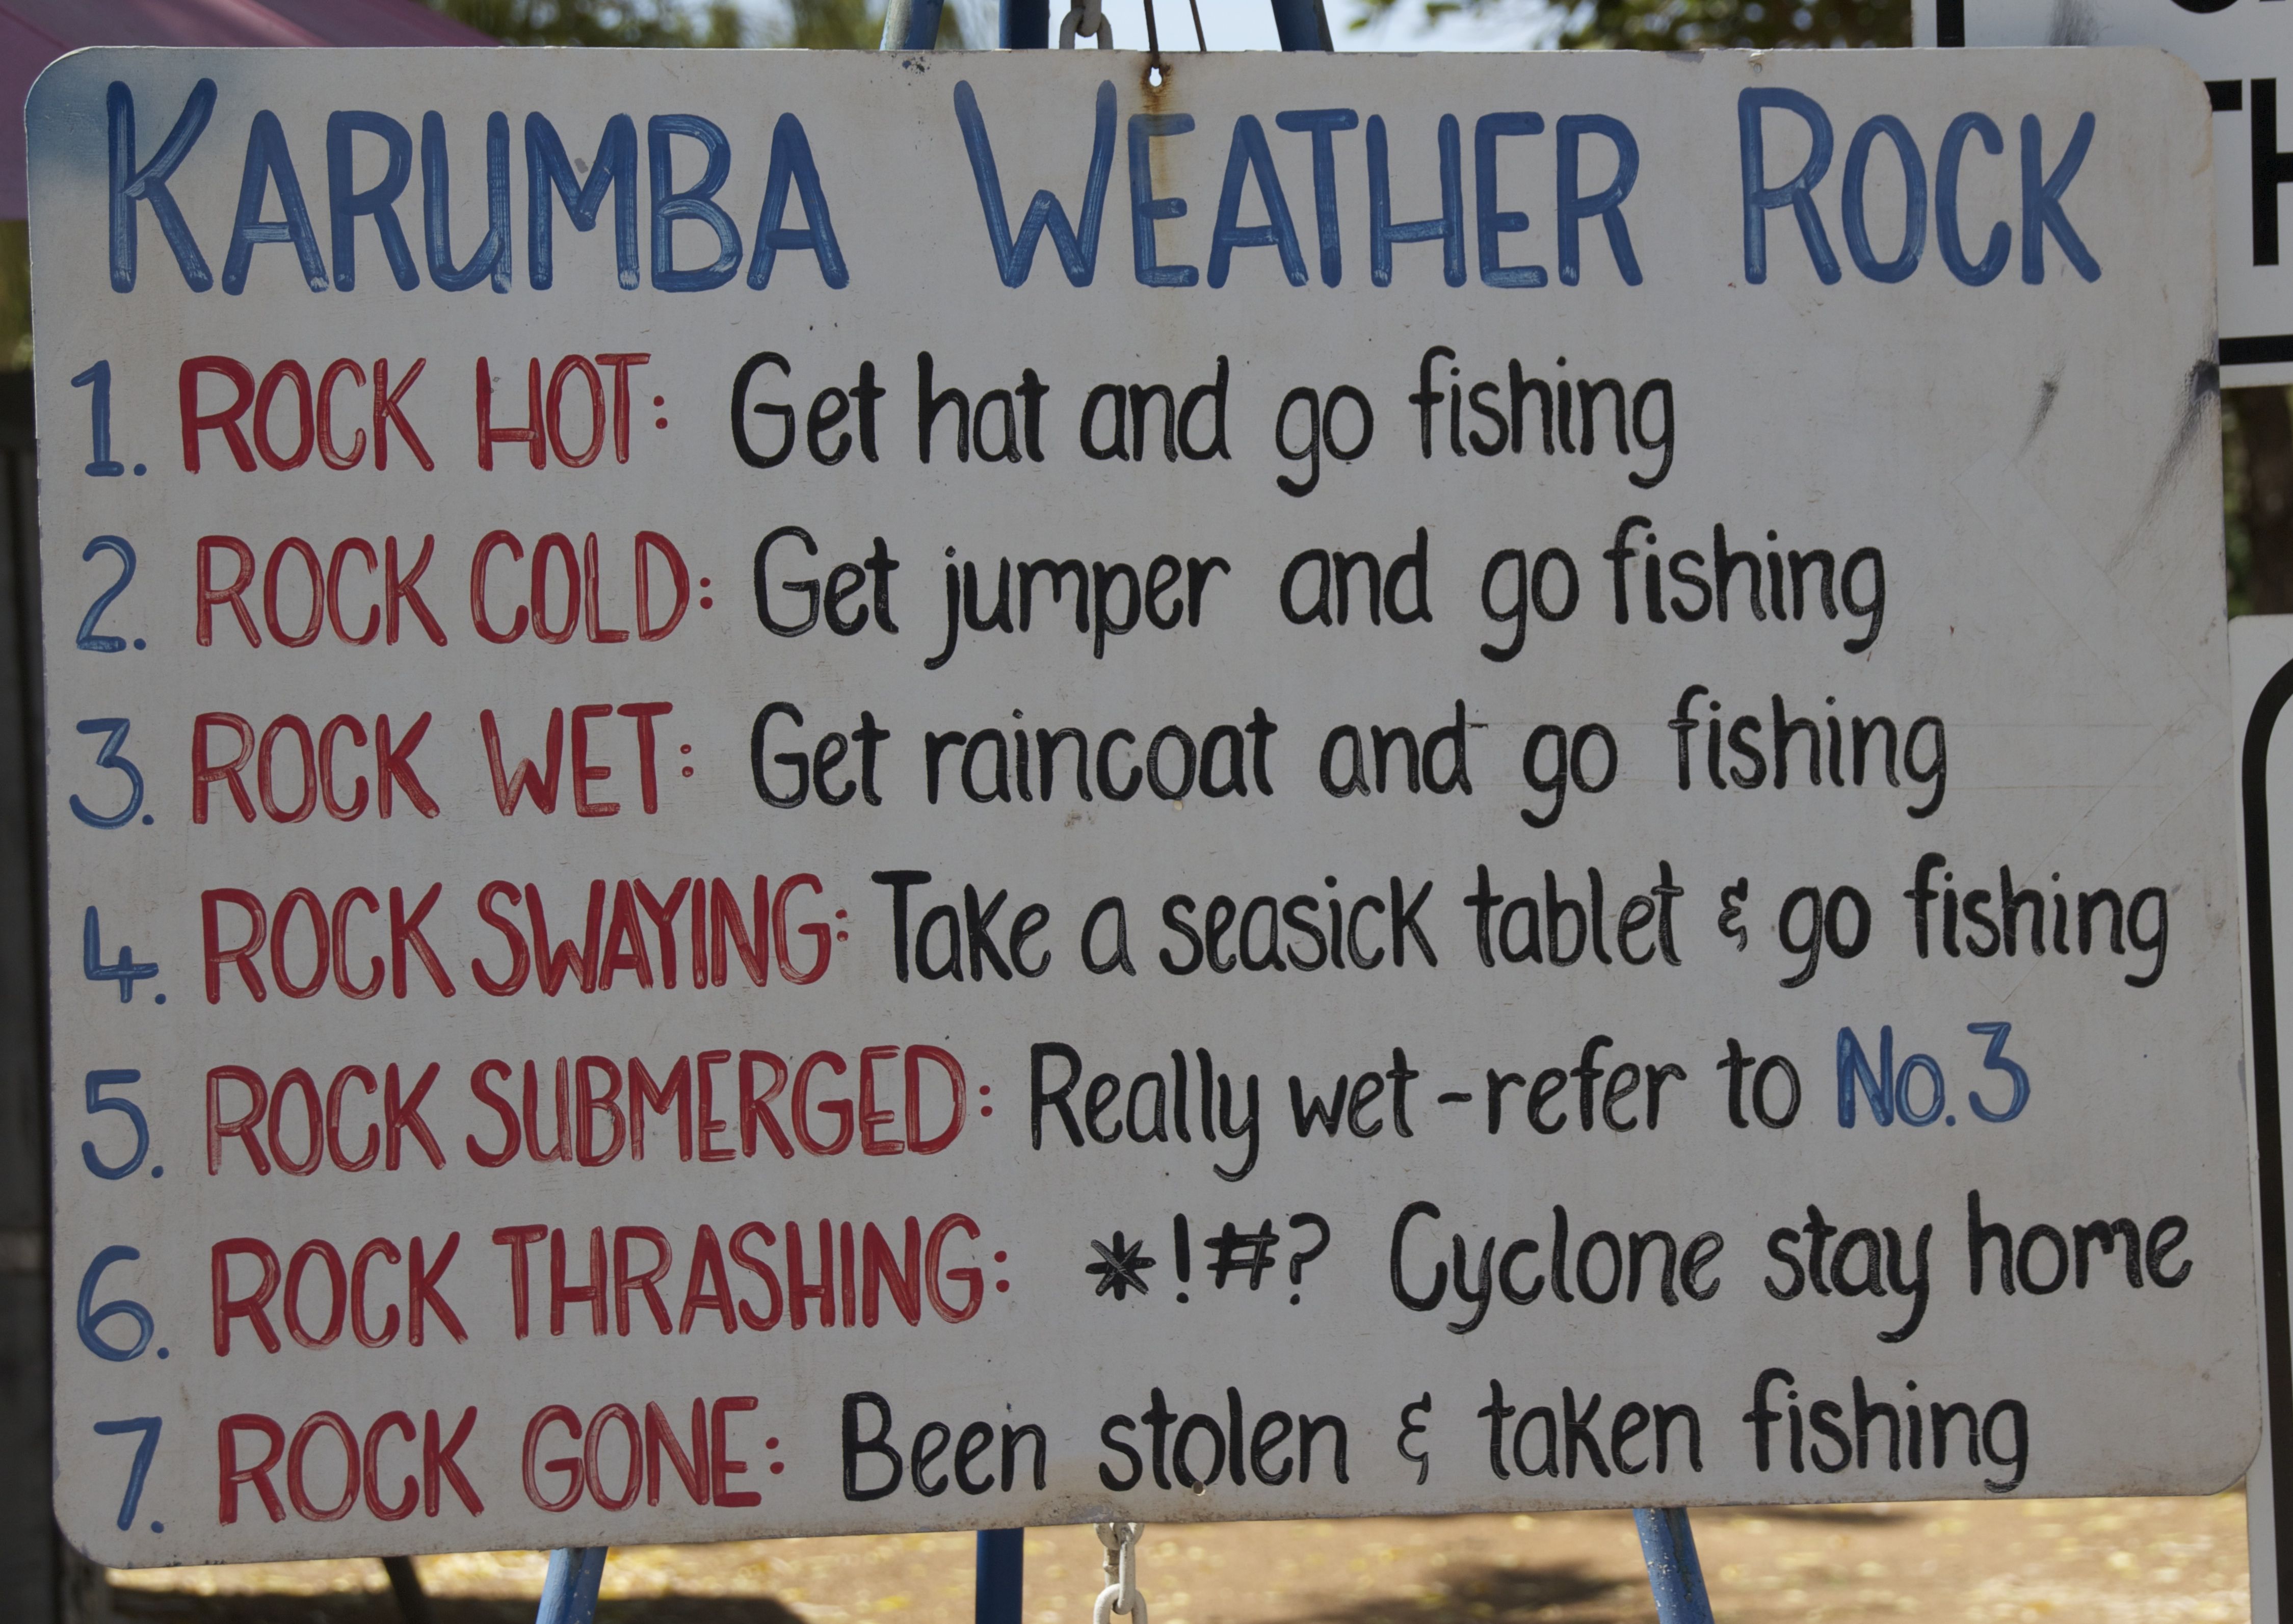 KARUMBA WEATHER ROCK
1. ROCK HOT: Get hat and go fishing
2. ROCK COLD: Get jumper and go fishing
3. ROCK WET: Get raincoat and go fishing
4. ROCK SWAYING: Take a seasick tablet & go fishing
5. ROCK SUBMERGED: Really wet - refer to No.3
6. ROCK THRASHING: *!#? Cyclone stay home
7. ROCK GONE: Been stolen & taken fishing